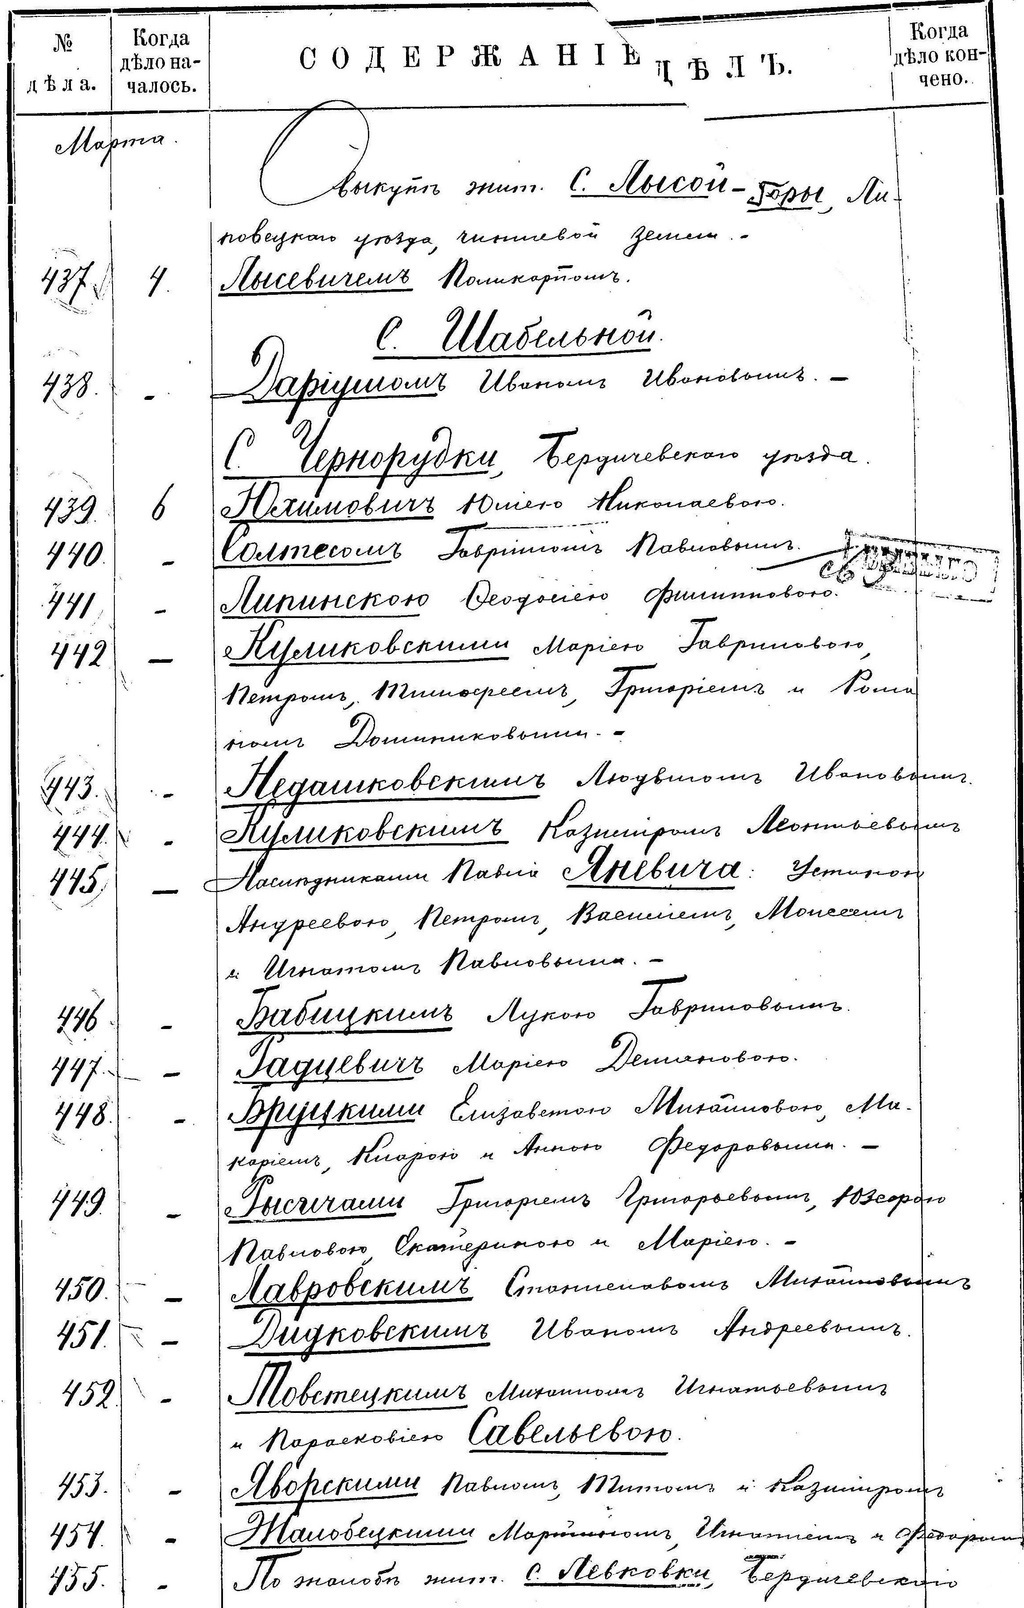 № дѣла.
Когда дѣло на-
чалось.
СОДЕРЖАНІЕ ДѢЛЪ.
Когда дѣло кон-
чено.
Марта.
О выкупѣ жит. С. Лысой-Горы, Ли-
повецкаго уѣзда, чиншевой земли. -
437 4. Лысевичемъ Поликарпомъ.
С. Шабельной.
438. - Даріушомъ Иваномъ Ивановымъ. -
С. Чернорудки, Бердичевскаго уѣзда.
439. 6 Юхимовичъ Юліею Николаевою.
440. - Солтесомъ Гавріиломъ Павловымъ.
441 - Липинскою Феодосіею Филипповою.
442 - Куликовскими Маріею Гавриловою,
Петромъ, Тимофеемъ, Григоріемъ и Рома
номъ Доминиковыми. -
443. - Недашковскимъ Людвигомъ Ивановымъ.
444. - Куликовскимъ Казиміромъ Леонтьевымъ
445 - Наслѣдниками Павла Яневича: Устиною
Андреевою, Петромъ, Василіемъ, Моисеемъ
и Игнатомъ Павловыми. -
446 - Бабицкимъ Лукою Гавриловымъ.
447. - Радцевичъ Маріею Демяновою.
448. - Бруцкими Елизаветою Михайловою, Ма-
каріемъ, Кларою и Анною Федоровыми. -
449. - Рысичами Григоріемъ Григорьевымъ, Юзефою
Павловою, Екатериною и Маріею. -
450. - Лавровскимъ Станиславомъ Михайловымъ
451. - Дидковскимъ Иваномъ Андреевымъ.
452 - Товстецкимъ Михаиломъ Игнатьевымъ
и Парасковіею Савельевою.
453. - Яворскими Павломъ, Титомъ и Казиміромъ
454. - Жалобецкими Мартиномъ, Игнатіемъ и Федоромъ
455. - По жалобѣ жит. с. Левковки, Бердичевскаго